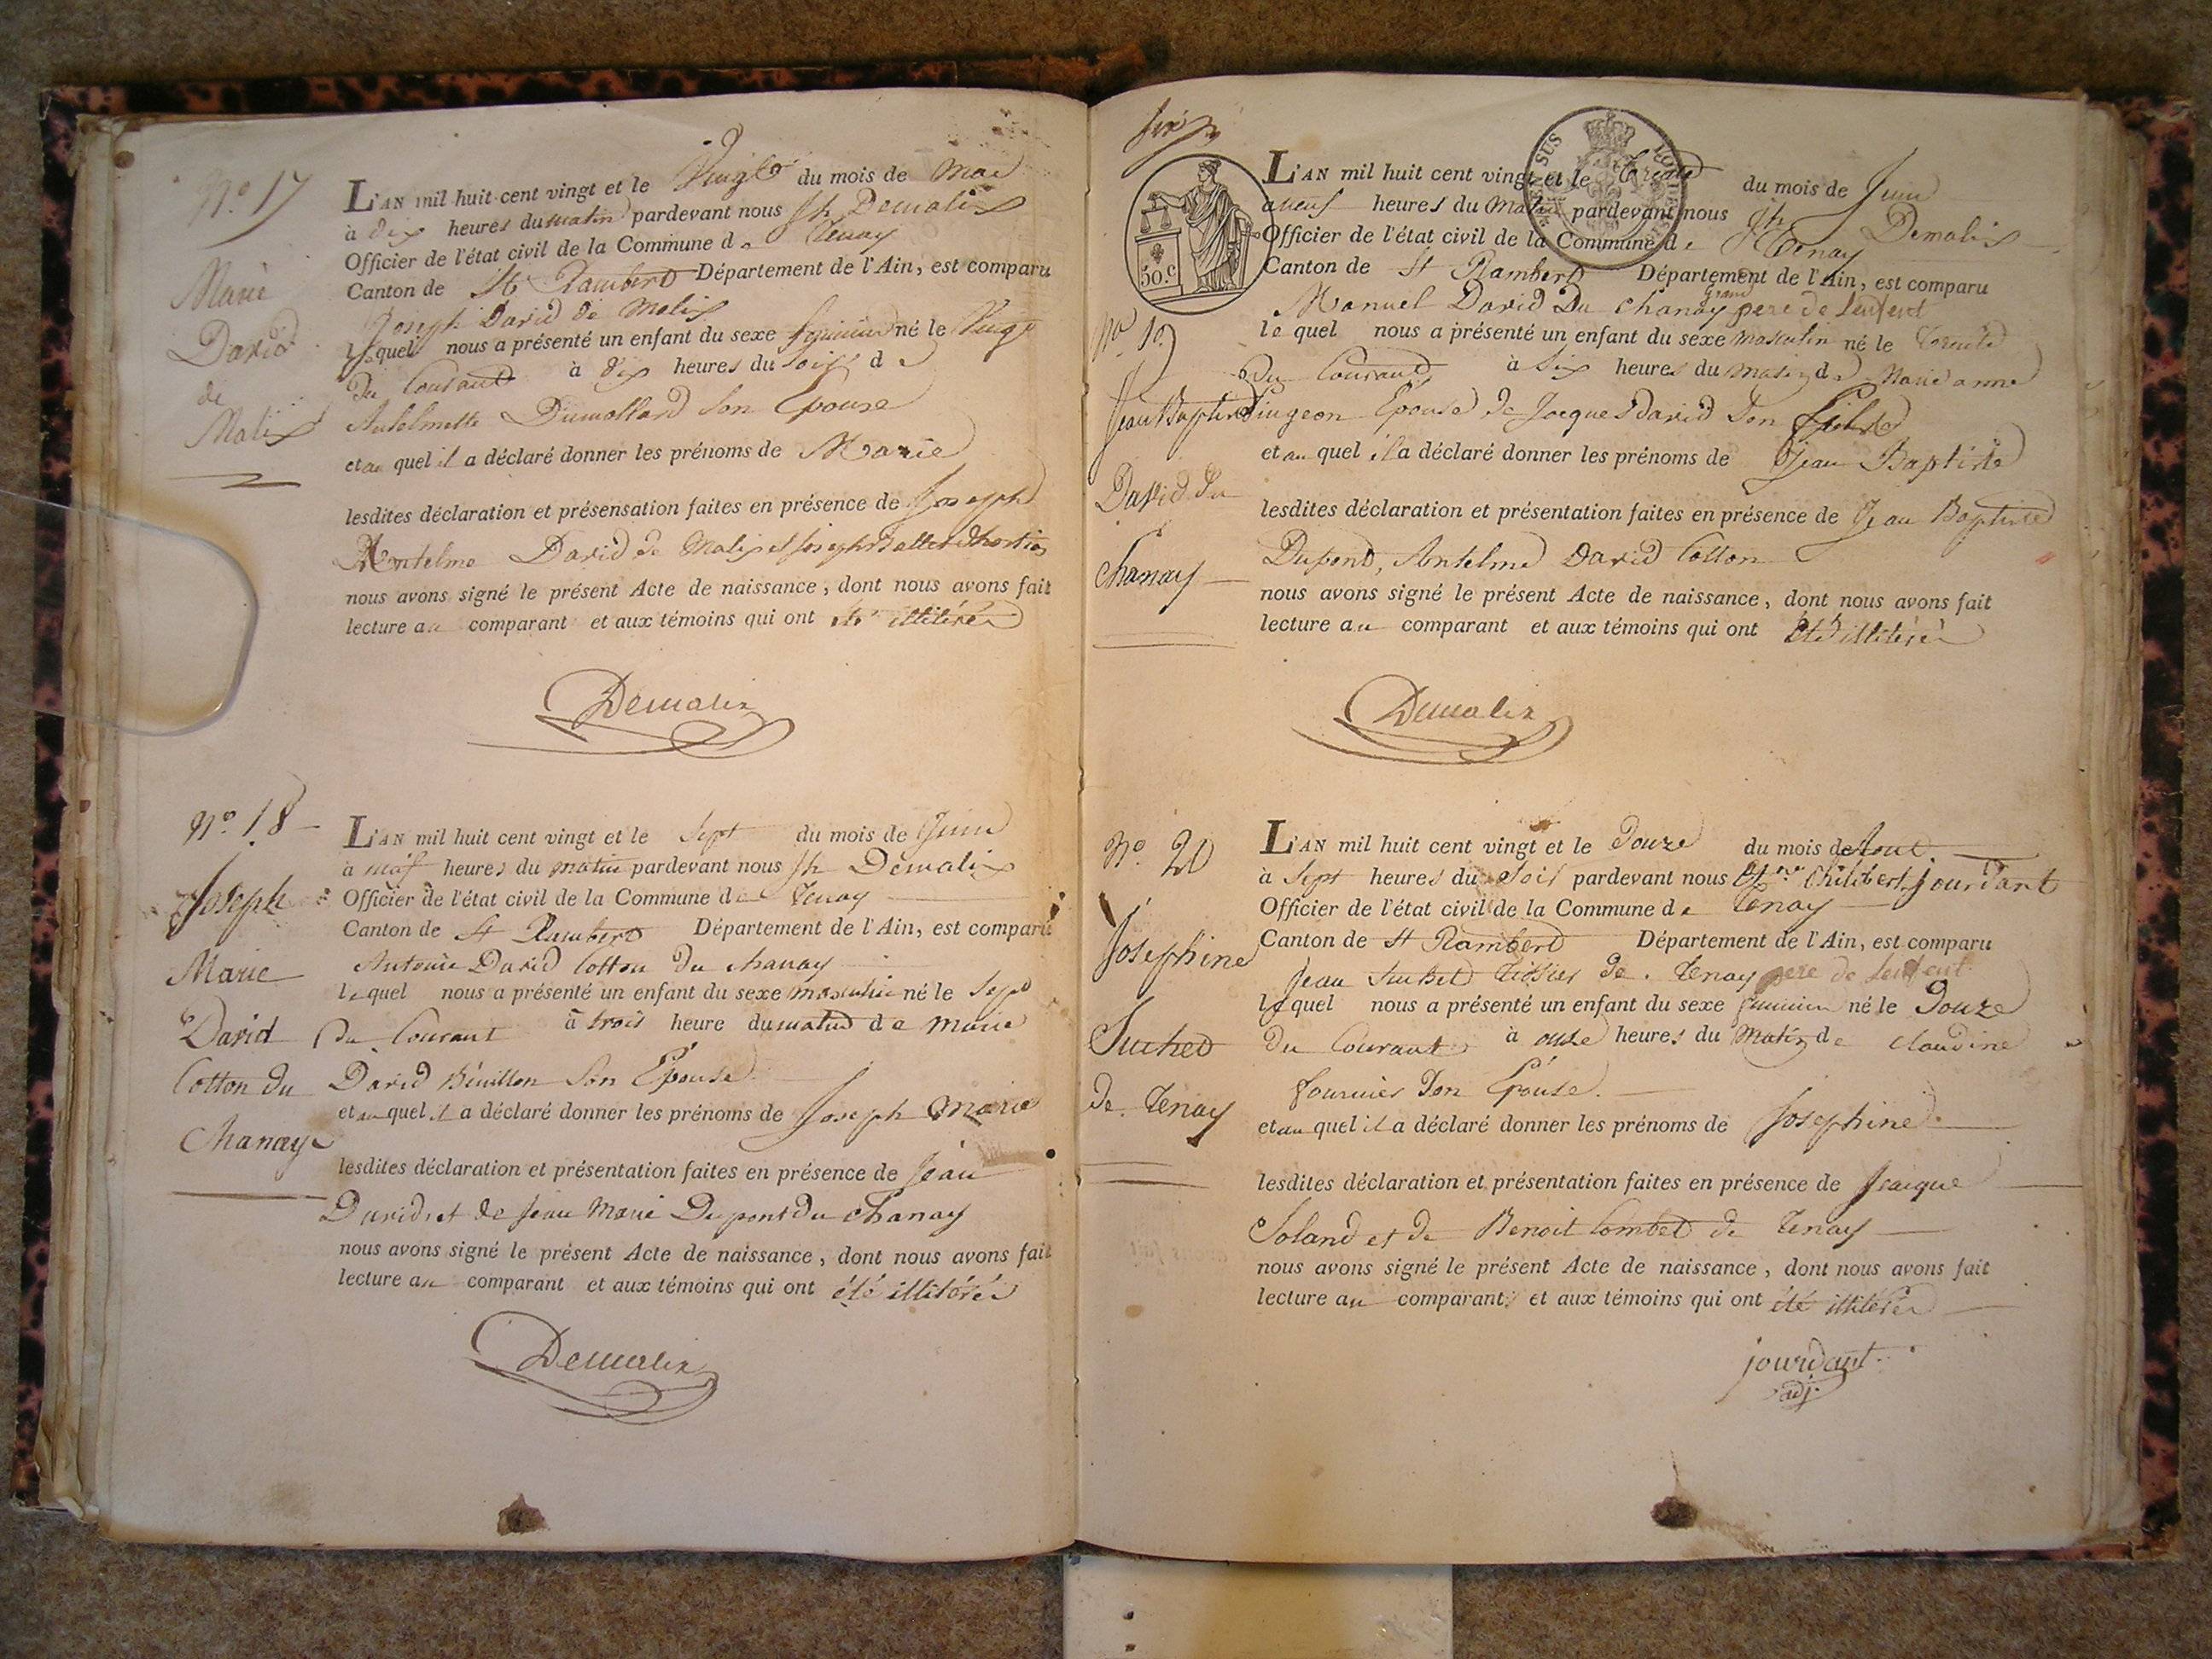 N.o 17
Marie
David
de
Malix
L'AN mil huit cent vingt et le Vingt du mois de Mai
à dix heures du matin pardevant nous Jh Demalix
Officier de l'état civil de la Commune de Tenay
Canton de St Rambert Département de l'Ain, est comparu
Joseph David de Malix
lequel nous a présenté un enfant du sexe feminin né le Vingt
du Courant à dix heures du soir de
Antelmette Dumollard son Epouse
et au quel il a déclaré donner les prénoms de Marie
lesdites déclaration et présensation faites en présence de Joseph
Antelme David de Malix et Joseph
nous avons signé le présent Acte de naissance, dont nous avons fait
lecture au comparant et aux témoins qui ont été illitérés
Demalix
N.o 18
Joseph
Marie
David
Cotton du
Chanay
L'AN mil huit cent vingt et le Sept du mois de Juin
à neuf heures du matin pardevant nous Jh Demalix
Officier de l'état civil de la Commune de Tenay
Canton de St Rambert Département de l'Ain, est comparu
Antoine David Cotton du Chanay
lequel nous a présenté un enfant du sexe masculin né le Sept
Du Courant à trois heure du matin de Marie
David Béuillon Son Epouse
et au quel il a déclaré donner les prénoms de Joseph Marie
lesdites déclaration et présentation faites en présence de Jean
David et de Jean Marie Dupont du Chanay
nous avons signé le présent Acte de naissance, dont nous avons fait
lecture au comparant et aux témoins qui ont été illitérés
Demalix
six
50.c
N.o 19
Jean Baptiste
David du
Chanay
L'AN mil huit cent vingt et le trente du mois de Juin
a neuf heures du Matin pardevant nous Jh Demalix
Officier de l'état civil de la Commune de Tenay
Canton de St Rambert Département de l'Ain, est comparu
Manuel David Du Chanay grand pere de Lenfent
le quel nous a présenté un enfant du sexe masculin né le trente
Du Courant à six heures du matin de Marie anne
Pingeon Epouse de Jacques David Son fils
et au quel il a déclaré donner les prénoms de Jean Baptiste
lesdites déclaration et présentation faites en présence de Jean Baptiste
Dupont, Antelme David Cotton
nous avons signé le présent Acte de naissance, dont nous avons fait
lecture au comparant et aux témoins qui ont été illitérés
Demalix
N.o 20
Josephine
Suchet
De Tenay
L'AN mil huit cent vingt et le Douze du mois de Aout
à Sept heures du Soir pardevant nous Chilibert jourdant
Officier de l'état civil de la Commune de Tenay
Canton de St Rambert Département de l'Ain, est comparu
Jean Suchet tissier de Tenay pere de Lenfent
lequel nous a présenté un enfant du sexe feminin né le Douze
Du Courant à onze heures du Matin de Claudine
fournier Son Epouse.
et au quel il a déclaré donner les prénoms de Josephine
lesdites déclaration et présentation faites en présence de Jacque
Soland et de Benoit Combet de Tenay
nous avons signé le présent Acte de naissance, dont nous avons fait
lecture au comparant et aux témoins qui ont été illitérés
jourdant
adj.